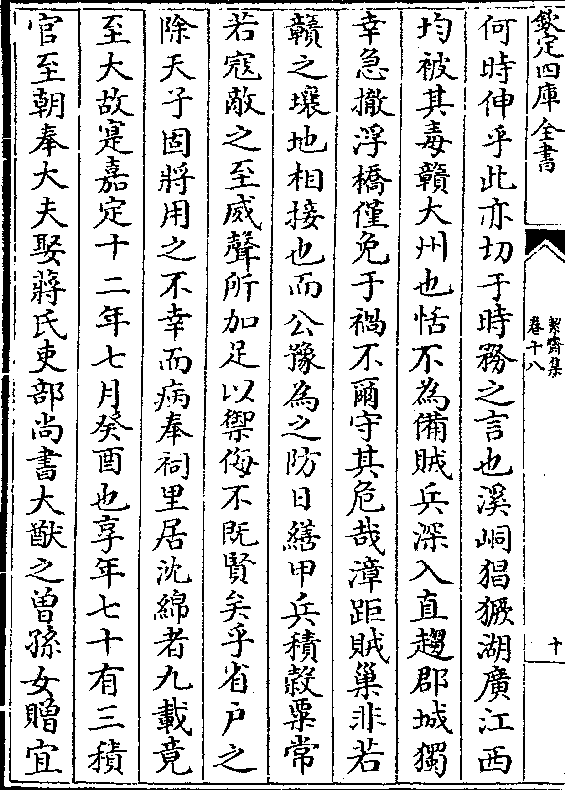 欽定四庫全書
絜齋集
卷十八
十
何時伸乎此亦切于時務之言也溪峒猖獗湖廣江西
均被其毒贛大州也恬不為備賊兵深入直趨郡城獨
幸急撤浮橋僅免于禍不爾守其危哉漳距賊巢非若
贛之壤地相接也而公豫為之防日繕甲兵積穀粟常
若寇敵之至威聲所加足以禦侮不既賢矣乎省戶之
除天子固將用之不幸而病奉祠里居沈綿者九載竟
至大故寔嘉定十二年七月癸酉也享年七十有三積
官至朝奉大夫娶蔣氏吏部尚書大猷之曽孫女贈宜